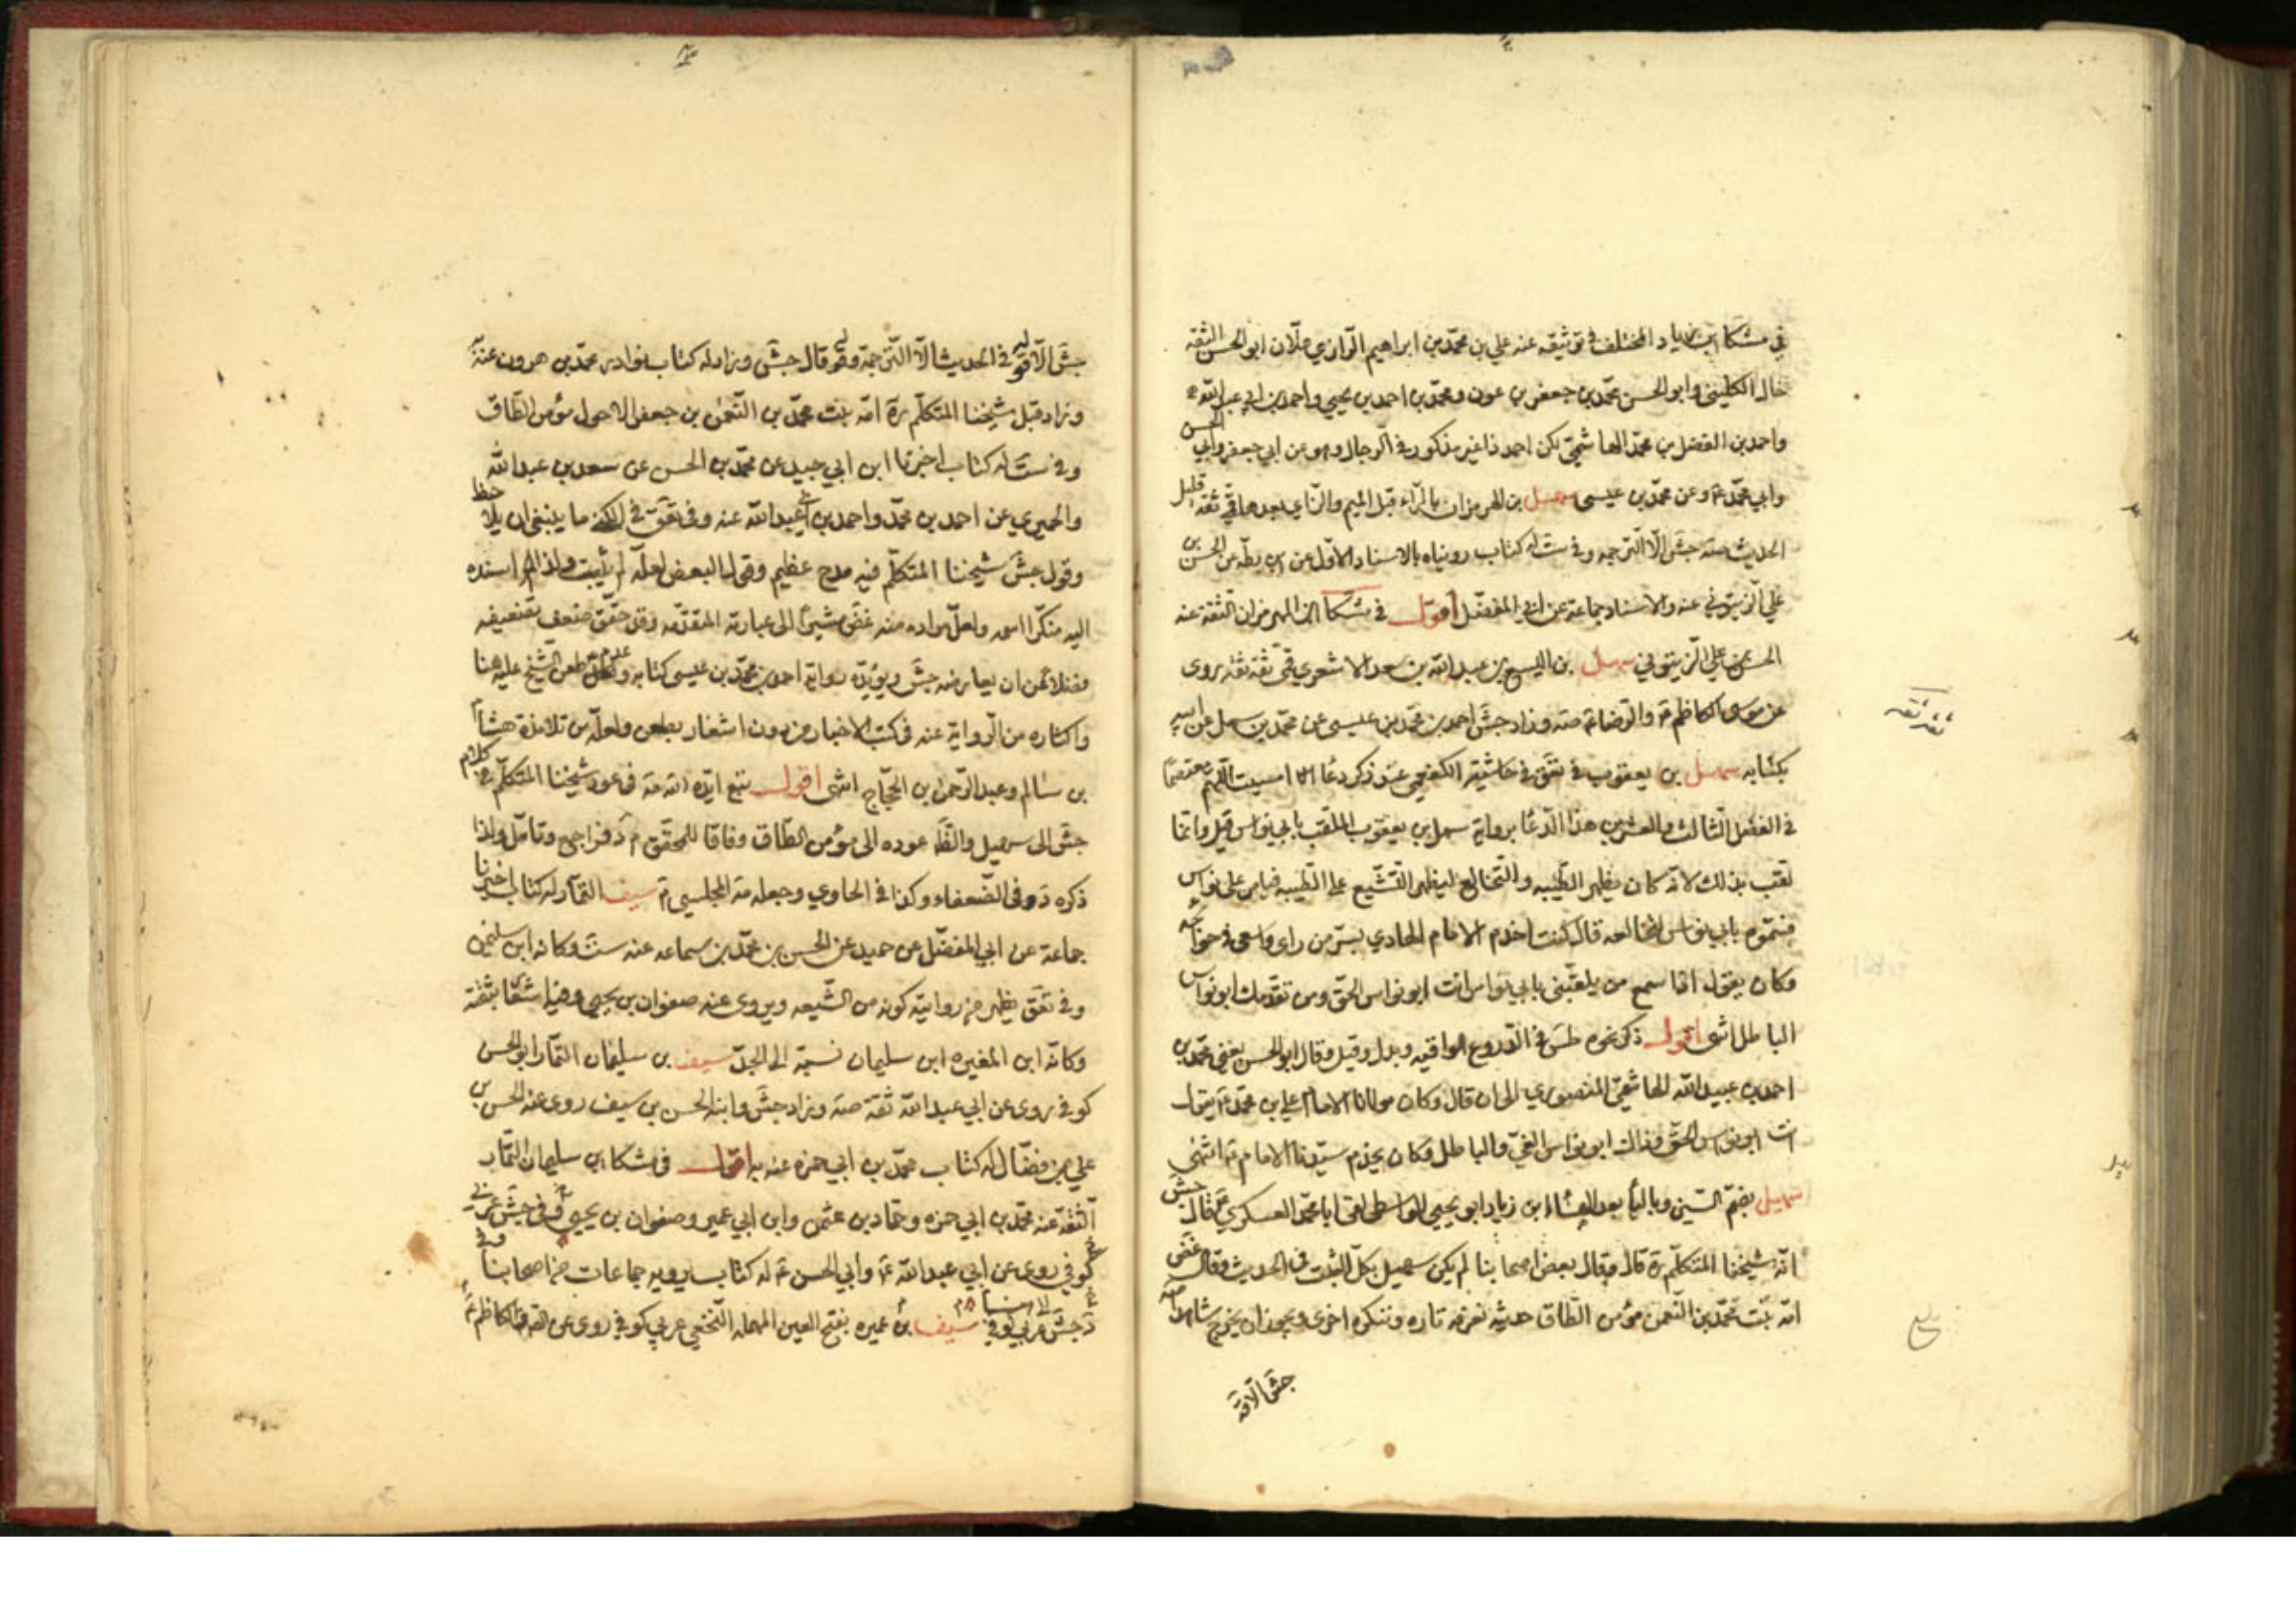 في مشكا ابن زياد المختلف في توثيقه عنه علي بن محمّد بن ابراهيم الرّازي علّان ابو الحسن الثقة
خال الكليني وابو الحسن محمّد بن جعفر بن عون ومحمّد بن احمد بن يحيى واحمد بن ابي عبد الله
واحمد بن الفضل بن محمّد الهاشميّ لكن احمد ذا غير مذكور في الرجال وهو عن ابي جعفر وابي الحسن
وابي محمّد ع وعن محمّد بن عيسى سهل بن الهرمزان بالرّاء قبل الميم والزّاي بعدها قمّي ثقة قليل
الحديث صه جش الّا الترجمه وفي ست له كتاب رويناه بالاسناد الاوّل عن ابن بطّه عن الحسن بن
علي الزيتوني عنه والاسناد جماعة عن ابي المفضّل اقول في مشكا ابن الهرمزان الثقة عنه
الحسن بن علي الزيتوني سهل بن اليسع بن عبد الله بن سعد الاشعري قمّي ثقة ثقة روى
عن موسى الكاظم ع والرّضا ع صه وزاد جش احمد بن محمّد بن عيسى عن محمّد بن سهل عن ابيه
بكتابه سهل بن يعقوب في تعق في حاشية الكفعمي عند ذكر دعاء امسيت اللهمّ معتصمًا
في الفصل الثالث والعشرين هذا الدّعا برواية سهل بن يعقوب الملقب بابي نواس قيل وانّما
لقب بذلك لانّه كان يظهر الطّيبه والتخالع ليظهر التشّيع على الطّيبه فيامن على نفسه
فسمّوه بابي نواس لتخالعه قال كنت اخدم الامام الهادي بسرّ من راى واسعى في حوائجه
وكان يقول اذا سمع من يلقّبني بابي نواس انت ابو نواس الحقّ ومن تقدّمك ابو نواس
الباطل انتهى اقول ذكر نحوه طس في الدّروع الواقيه وبدل وقيل وقال ابو الحسن يعني محمّد بن
احمد بن عبيد الله الهاشميّ المنصوري الى ان قال وكان مولانا الامام علي بن محمّد ع يقول
انت ابو نواس الحقّ وذاك ابو نواس الغيّ والباطل وكان يخدم سيّدنا الامام ع انتهى
سهيل بضمّ السّين وباليآء بعد الهاء ابن زياد ابو يحيى الواسطي لقى ابا محمّد العسكري ع قال جش
انّه شيخنا المتكلّم ره قال وقال بعض اصحابنا لم يكن سهيل بكلّ الثبت في الحديث وقال غض
امّه بنت محمّد بن النّعمن مؤمن الطّاق حديثه نعرفه تاره وننكره اخرى ويجوز ان يخرج شاهدا صه
جش الّا قه
ثقة ثقه
جش الّا قوله في الحديث الّا الترجمة وقوله قال جش وزاد له كتاب نوادر محمّد بن هرون عنه
وزاد قبل شيخنا المتكلّم ره امّه بنت محمّد بن النّعمن بن جعفر الاحول مؤمن الطّاق
وفي ست له كتاب اخبرنا ابن ابي جيد عن محمّد بن الحسن عن سعد بن عبد الله
والحميري عن احمد بن محمّد واحمد بن ابي عبد الله عنه وفي تعق في الكنى ما ينبغي ان يلاحظ
وقول جش شيخنا المتكلّم فيه مدح عظيم وقول البعض لعلّه لم يثبت ولذا اسنده
اليه منكّرا اسمه ولعلّ مراده منه غض مشيرًا الى عبارته المتقدّمه وقد حقّق ضعف تضعيفه
فضلا عن ان يعارضه جش ويؤيّده رواية احمد بن محمّد بن عيسى كتابه وكذا عدم طعن الشّيخ عليه هنا
واكثاره من الرّواية عنه في كتب الاخبار من دون اشعار بطعن ولعلّه من تلامذة هشام
بن سالم وعبد الرّحمن بن الحجّاج انتهى اقول تتبع ايّده الله مه في عود شيخنا المتكلّم في كلام
جش الى سهيل والظّ عوده الى مؤمن الطّاق وفاقا للمحقق م د فراجع وتامّل ولذا
ذكره د في الضّعفاء وكذا في الحاوي وجعله مه المجلسي م سيف التمّار له كتاب اخبرنا
جماعة عن ابي المفضّل عن حميد عن الحسن بن محمّد بن سماعه عنه ست وكانه ابن سليمن
وفي تعق يظهر من روايته كونه من الشّيعه ويروى عنه صفوان بن يحيى وفيه اشعار بثقته
وكانّه ابن المغيره ابن سليمان نسبة الى الجدّ سيف بن سليمان التمّار ابو الحسن
كوفي روى عن ابي عبد الله ثقة صه وزاد جش وابنه الحسن بن سيف روى عنه الحسن بن
علي بن فضّال له كتاب محمّد بن ابي حمزه عنه به اقول في مشكا ابن سليمان التمّار
الثقة عنه محمّد بن ابي حمزه وحمّاد بن عثمن وابن ابي عمير وصفوان بن يحيى وفي جش عربي
كوفي روى عن ابي عبد الله ع وابي الحسن ع له كتاب يرويه جماعات من اصحابنا
جش عربي كوفي سيف بن عميره بفتح العين المهمله النّخعي عربي كوفي روى عن الصّادق والكاظم ع